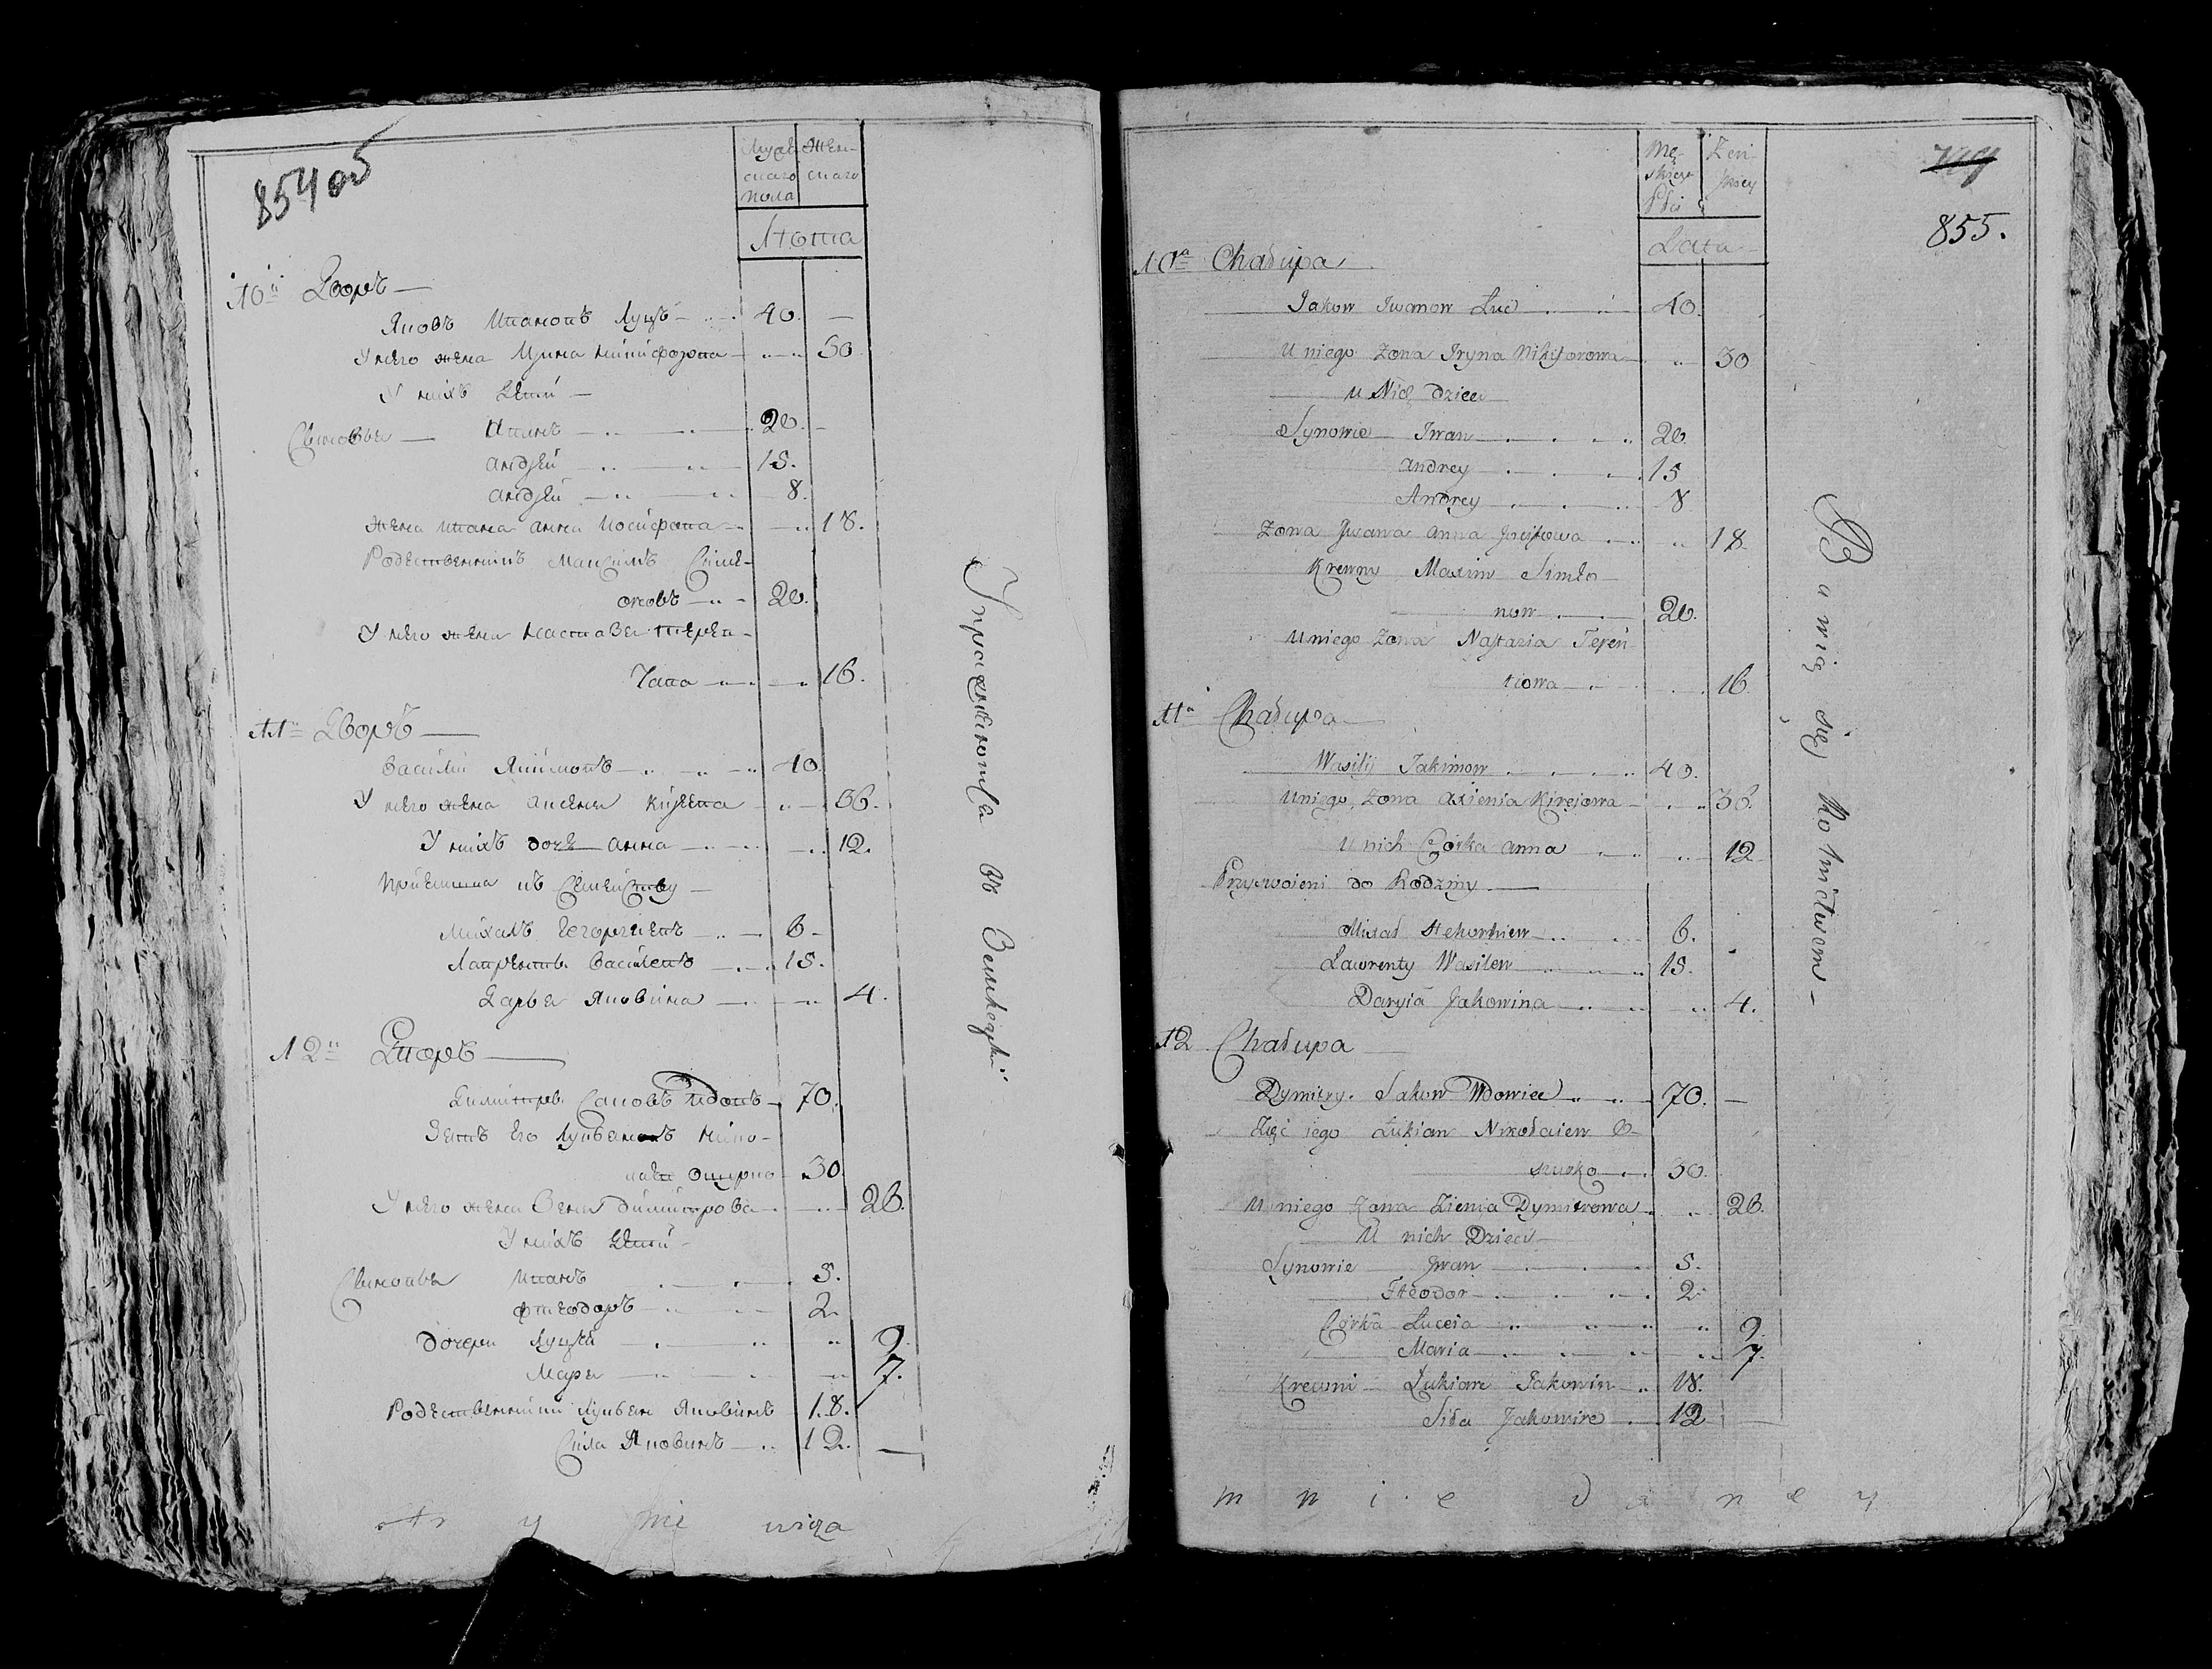 854 об
Мужескаго пола
Женскаго
Лета
10й Дворъ
Яковъ Ивановъ Луцъ 40.
У него жена Ирина Никифорова 30
У нихъ Дети
Сыновья Иванъ 20.
Андрей 15.
Андрей 8.
Жена Ивана Анна Иосифова 18.
Родственникъ Максимъ Симе-
оновъ 20.
У него жена Настазья Терен-
11й Дворъ
16.
Василий Якимовъ 40.
У него жена Аксенья Киреева 36.
У нихъ дочь Анна 12.
к Семейству
Михалъ 6
Лаврентий Василевъ 15.
Дарья Яковина 4.
12й Дворъ
Димитрей Саковъ Вдовъ 70.
Зять Его Лукьянъ Нико-
лаев 30.
У него жена Зеня Димитрова 26.
У нихъ Дети
Сыновья Иванъ 5.
Фтеодоръ 2.
Дочери Луцея 9.
Марья 7.
Родственники Лукьян Яковинъ 18.
Сила Яковинъ 12.
Упражняются в Земледелии
855.
Męskiey Płci
Żeńskiey
Lata
10a Chałupa
Jakow Iwanow Łuc 40.
U niego Żona Iryna Nikiforowa 30
U Nich Dzieci
Synowie Iwan 20
Andrey 15
Andrey 8
Żona Iwana Anna Josifowa 18.
Krewny Maxim Simeo
now 20.
U niego Żona Nastazia Teren
tiowa 16
11a Chałupa
Wasilij Jakimow 40.
U niego Żona Axienia Kirejowa 36.
U nich Córka Anna 12
Przyswoieni do Rodziny
Michał Hehorkiew 6.
Lawrenty Wasilew 15.
Daryia Jakowina 4.
12 Chałupa
Dymitry Sakow Wdowiec 70.
Zięć iego Łukian Nikołaiew O-
szurko 30.
U niego Żona Zienia Dymitrowa 26.
U nich Dzieci
Synowie Iwan 5.
Fteodor 2
Córka Łuceia 9.
Maria 7.
Krewni Łukian Jakowin 18.
Siła Jakowin 12
Bawią się Rolnictwem
m n i e d a n e y